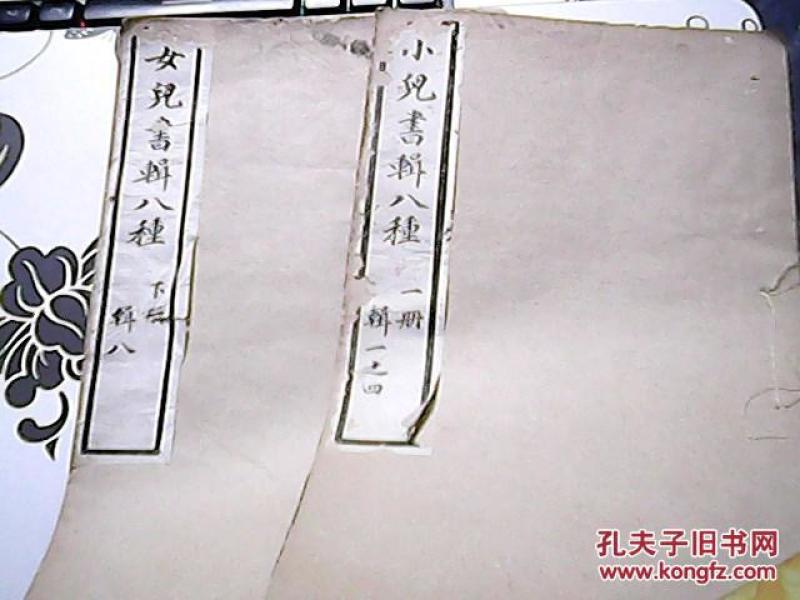 小兒書輯八種
一册
輯一之四
女兒書輯八種
下
輯八
孔夫子旧书网
www.kongfz.com